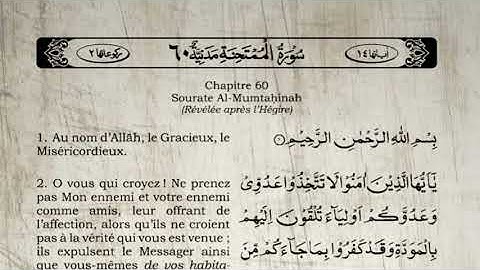 رکوعاتها ٢
سُوْرَةُ الْمُمْتَحِنَةِ مَدَنِيَّةٌ ٦٠
اٰیاتها ١٤
Chapitre 60
Sourate Al-Mumtaḥinah
(Révélée après l’Hégire)
1. Au nom d’Allāh, le Gracieux, le
Miséricordieux.
2. O vous qui croyez ! Ne prenez
pas Mon ennemi et votre ennemi
comme amis, leur offrant de
l’affection, alors qu’ils ne croient
pas à la vérité qui vous est venue ;
ils expulsent le Messager ainsi
que vous-mêmes de vos habita-
بِسْمِ اللّٰهِ الرَّحْمٰنِ الرَّحِيْمِ ١
يٰۤاَيُّهَا الَّذِيْنَ اٰمَنُوْا لَا تَتَّخِذُوْا عَدُوِّيْ
وَعَدُوَّكُمْ اَوْلِيَآءَ تُلْقُوْنَ اِلَيْهِمْ
بِالْمَوَدَّةِ وَقَدْ كَفَرُوْا بِمَا جَآءَكُمْ مِّنَ